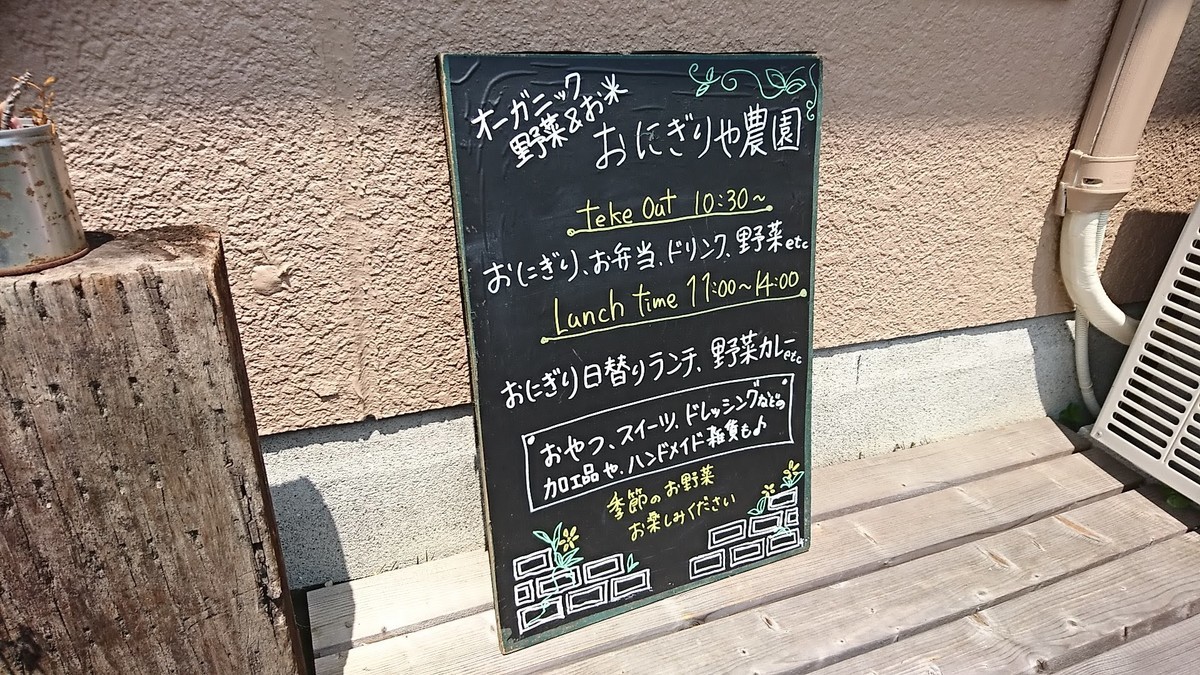 オーガニック
野菜&お米
おにぎりや農園
teke Out 10:30~
おにぎり、お弁当、ドリンク、野菜etc
Lunch time 11:00~14:00
おにぎり日替りランチ、野菜カレーetc
おやつ、スイーツ、ドレッシングなどの
加工品や、ハンドメイド雑貨も♪
季節のお野菜
お楽しみください